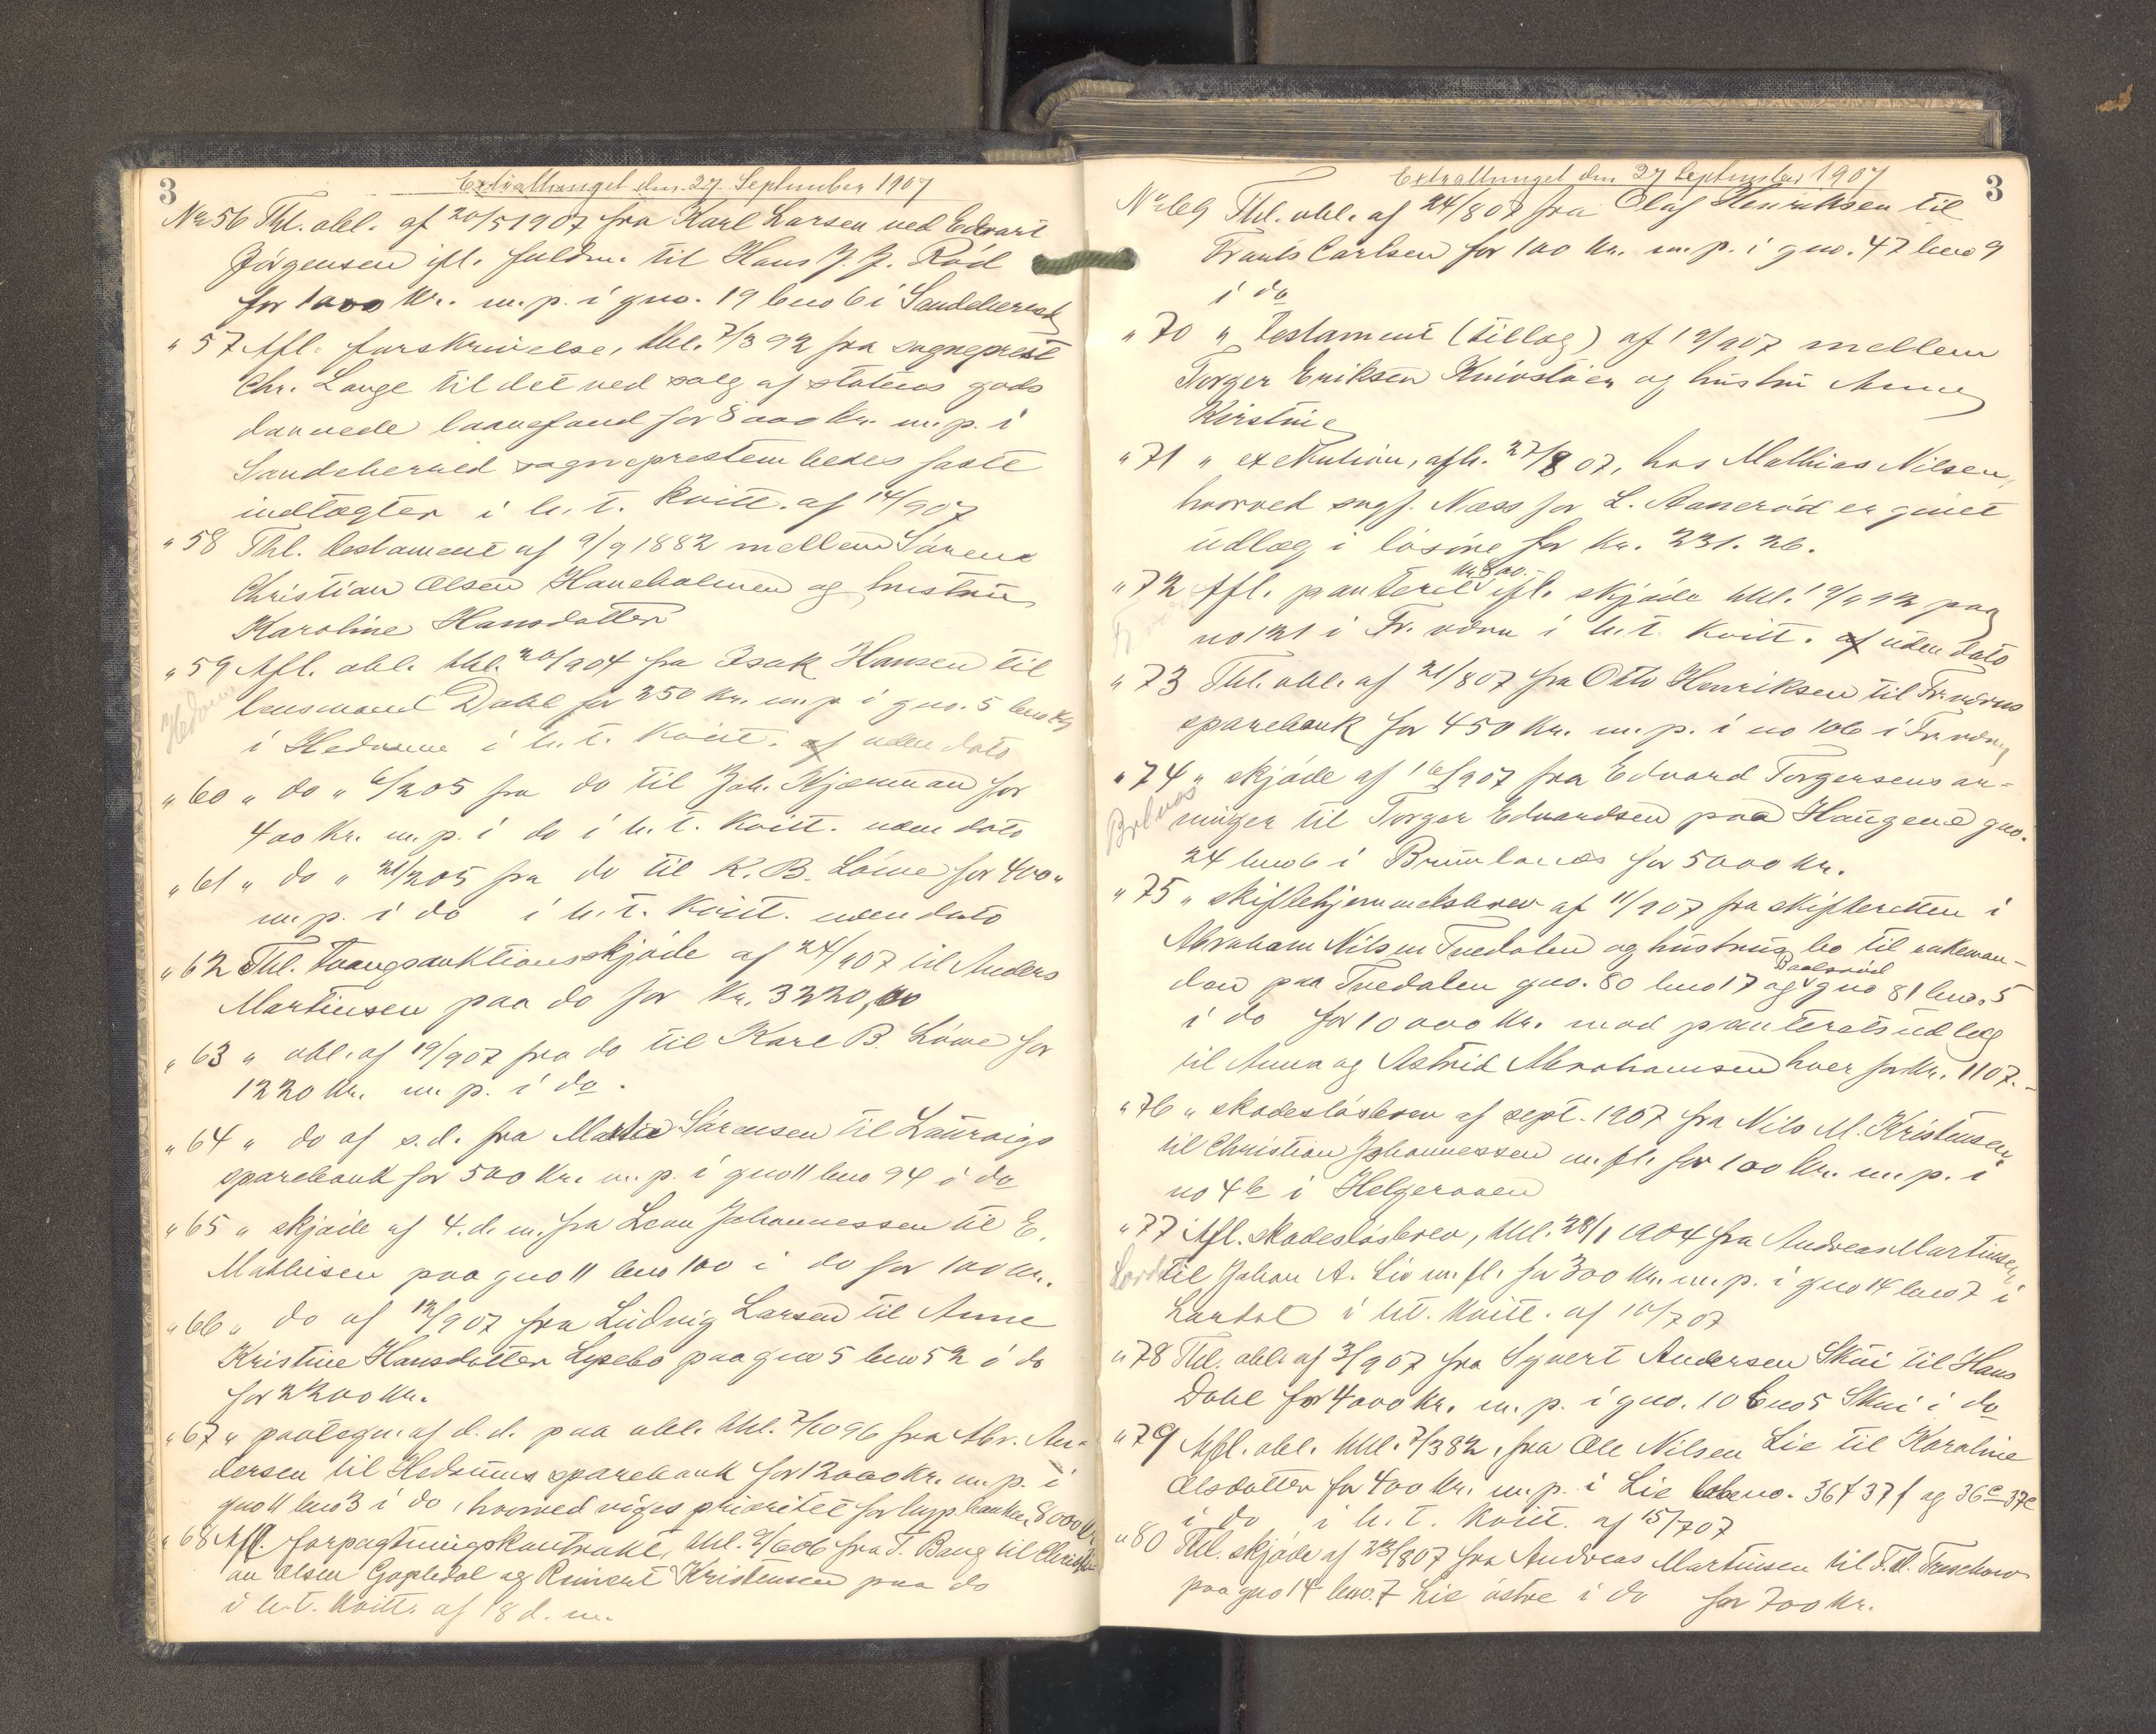 3
Extrathinget den 27 September 1907
No 56 Thl. obl. af 20/5 1907 fra Karl Larsen ved Edvart
Jörgensen ifl. fuldm. til Hans J. J. Röd
for 1000 kr. m. p. i gno. 19 bno 6 i Sandeherred
" 57 Afl. forskrivelse, thl. 7/3 92 fra sogneprest
Chr. Lange til det ved salg af statens gods
dannede laanefond for 8000 kr. m. p. i
Sandeherred sogneprestembedes faste
indtægter i h. t. kvitt. af 14/9 07
" 58 Thl. testament af 9/9 1882 mellem Sörene
Christian Olsen Haneholmen og hustru
Karoline Hansdatter
" 59 Afl. obl. thl. 20/9 04 fra Isak Hansen til
lensmand Dahl for 250 kr. m. p. i gno. 5 bno
i Hedrum i h. t. kvitt. af uden dato
" 60 " do " 6/2 05 fra do til Joh. Kjærman for
400 kr. m. p. i do i h. t. kvitt. uden dato
" 61 " do " 21/2 05 fra do til K. B. Löwe for 400 "
m. p. i do i h. t. kvitt. uden dato
" 62 Thl. tvangsauktionsskjöde af 24/9 07 til Anders
Martinsen paa do for kr. 3220,00
" 63 " obl. af 19/9 07 fra do til Karl B. Löwe for
1220 kr. m. p. i do.
" 64 " do af s. d. fra Martin Sörensen til Laurvigs
sparebank for 500 kr. m. p. i gno 11 bno 94 i do
" 65 " skjöde af 4. d. m. fra Lenn Johannessen til E.
Mathisen paa gno 11 bno 100 i do for 100 kr.
" 66 " do af 12/9 07 fra Ludvig Larsen til Anne
Kristine Hansdatter Lysebo paa gno 5 bno 52 i do
for 2200 kr.
" 67 " paategn. af d. d. paa obl. thl. 7/10 96 fra Abr. An-
dersen til Hedrums sparebank for 12000 kr. m. p. i
gno 11 bno 3 i do, hvorved viges prioritet for hyp. banken 8000 kr
" 68 Afl. forpagtningskontrakt, thl. 2/6 06 fra F. Bang til Christi
an Olsen Gopledal og Reinert Kristensen paa do
i h. t. kvitt. af 18 d. m.
3
Extrathinget den 27 September 1907
No 69 Thl. obl. af 24/8 07 fra Olaf Henriksen til
Frants Carlsen for 100 kr. m. p. i gno. 47 bno 9
i do
" 70 " testament (tillæg) af 19/9 07 mellem
Torger Eriksen Knivslöen og hustru Anne
Kirstine
" 71 " exekution, afh. 27/8 07, hos Mathias Nilsen,
hvorved sagf. Næss for L. Aaneröd er givet
udlæg i lösöre for kr. 231. 26.
" 72 Afl. panteret kr 800.- ifl. skjöde thl. 19/9 92 paa
no 121 i Fr. værn i h. t. kvitt. af uden dato
" 73 Thl. obl. af 21/8 07 fra Otto Henriksen til Fr. værns
sparebank for 450 kr. m. p. i no 106 i Fr. værn
" 74 " skjöde af 16/9 07 fra Edvard Torgersens ar-
vinger til Torger Edvardsen paa Haugene gno.
24 bno 6 i Brunlanæs for 5000 kr.
" 75 " skiftehjemmelsbrev af 11/9 07 fra skifteretten i
Abraham Nilsen Tvedalen og hustrus bo til enkeman-
den paa Tvedalen gno. 80 bno 17 og gno 81 bno. 5
i do for 10000 kr. mod panteretsudlæg
til Anna og Astrid Abrahamsen hver for kr. 1107.-
" 76 " skadeslösbrev af sept. 1907 fra Nils M. Kristensen
til Christian Johannessen m. fl. for 100 kr. m. p. i
no 46 i Helgeroaen
" 77 Afl. skadeslösbrev, thl. 28/1 1904 fra Andreas Martinsen
til Johan A. Lie m. fl. for 300 kr. m. p. i gno 14 bno 7 i
Lardal i h. t. kvitt. af 10/7 07
" 78 Thl. obl. af 3/9 07 fra Syvert Andersen Skui til Hans
Dahl for 4000 kr. m. p. i gno. 10 bno 5 Skui i do
" 79 Afl. obl. thl. 7/3 82, fra Ole Nilsen Lie til Karoline
Olsdatter for 400 kr. m. p. i Lie lobeno. 36f 37f og 36c 37c
i do i h. t. kvitt. af 15/7 07
" 80 Thl. skjöde af 23/8 07 fra Andreas Martinsen til F. M. Treschow
paa gno 14 bno. 7 Lie östre i do for 700 kr.